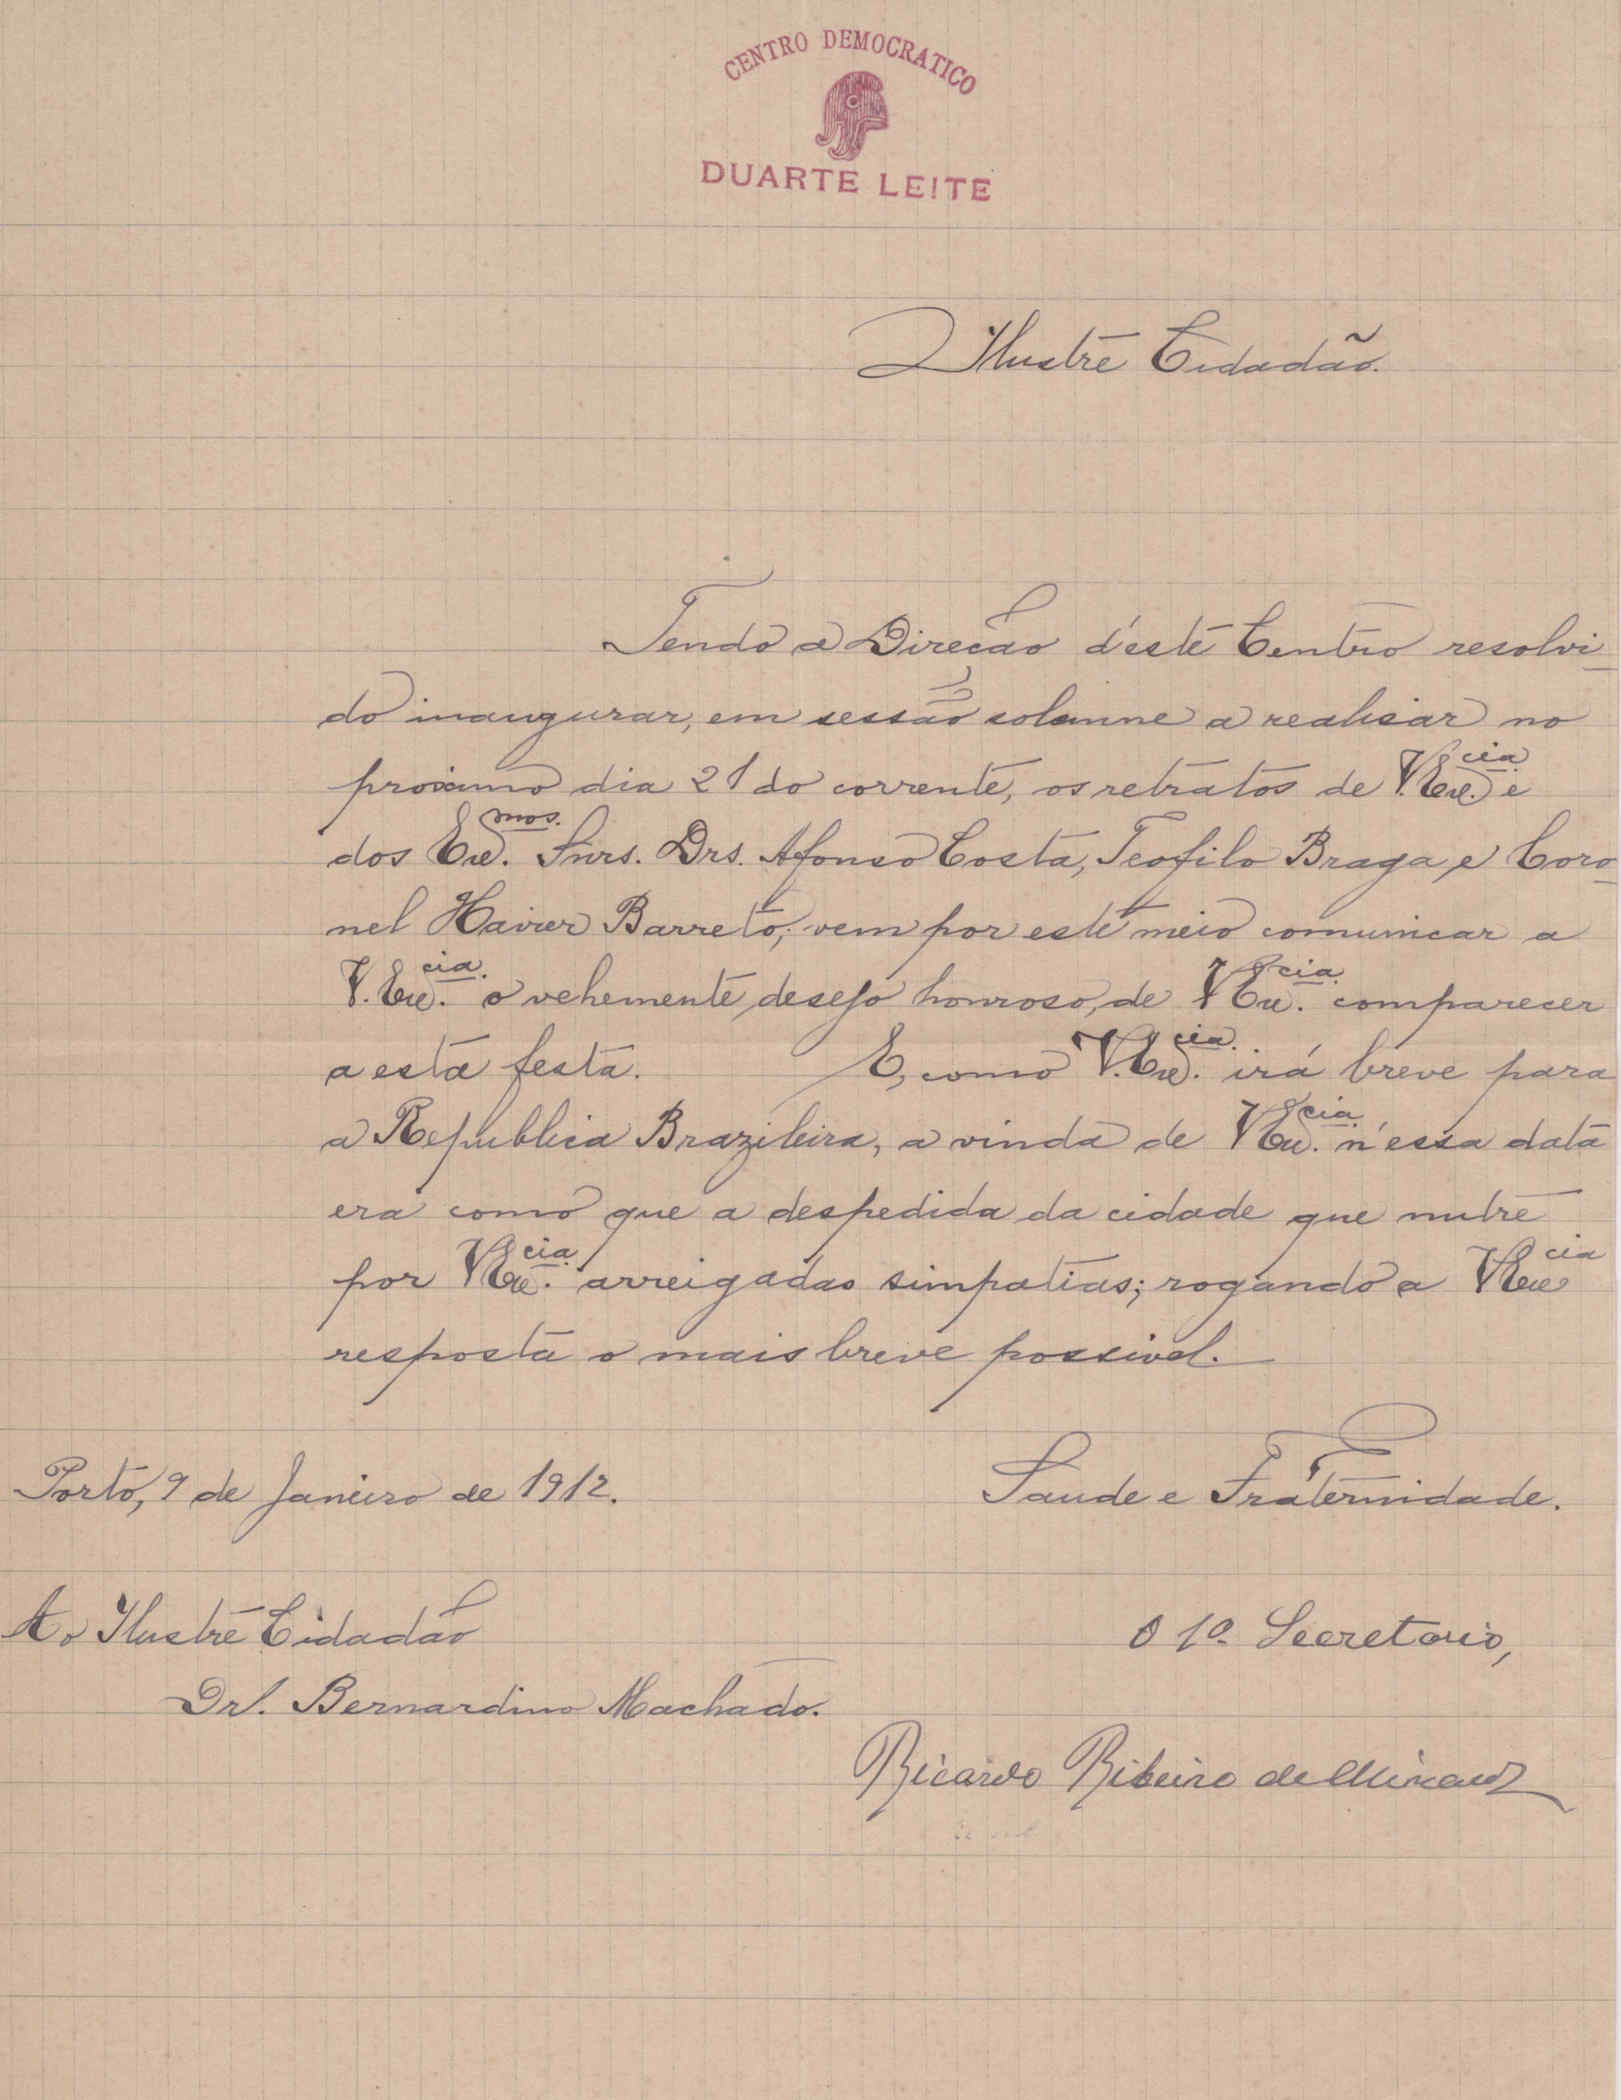 CENTRO DEMOCRATICO
DUARTE LEITE
Ilustre Cidadão.
Tendo a Direcão d'este Centro resolvi-
do inaugurar, em sessão solemne a realisar no
proximo dia 21 do corrente, os retratos de V. Exc.cia e
dos Exc.mos. Snrs. Drs. Afonso Costa, Teofilo Braga e Coro-
nel Xavier Barreto; vem por este meio comunicar a
V. Exc.cia. o vehemente desejo honroso, de V. Exc.cia. comparecer
a esta festa. E, como V. Exc.cia. irá breve para
a Republica Brazileira, a vinda de V. Exc.cia. n'essa data
era como que a despedida da cidade que nutre
por V. Exc.cia. arreigadas simpatias; rogando a V. Exc.cia
resposta o mais breve possivel.
Porto, 9 de Janeiro de 1912.
Saude e Fraternidade.
Ao Ilustre Cidadão
O 1º. Secretario,
Dr. Bernardino Machado.
Ricardo Ribeiro de